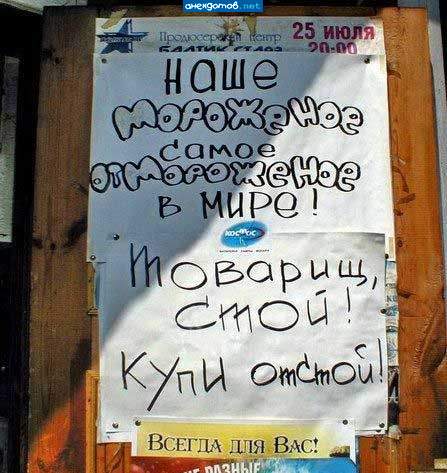 анекдотов.net
Продюсерский центр
25 июля
БАЛТИК СТАРЗ 20:00
Наше
мороженое
самое
отмороженое
в мире!
космос
Товарищ,
стой!
Купи отстой!
Всегда для Вас!
РАЗНЫЕ